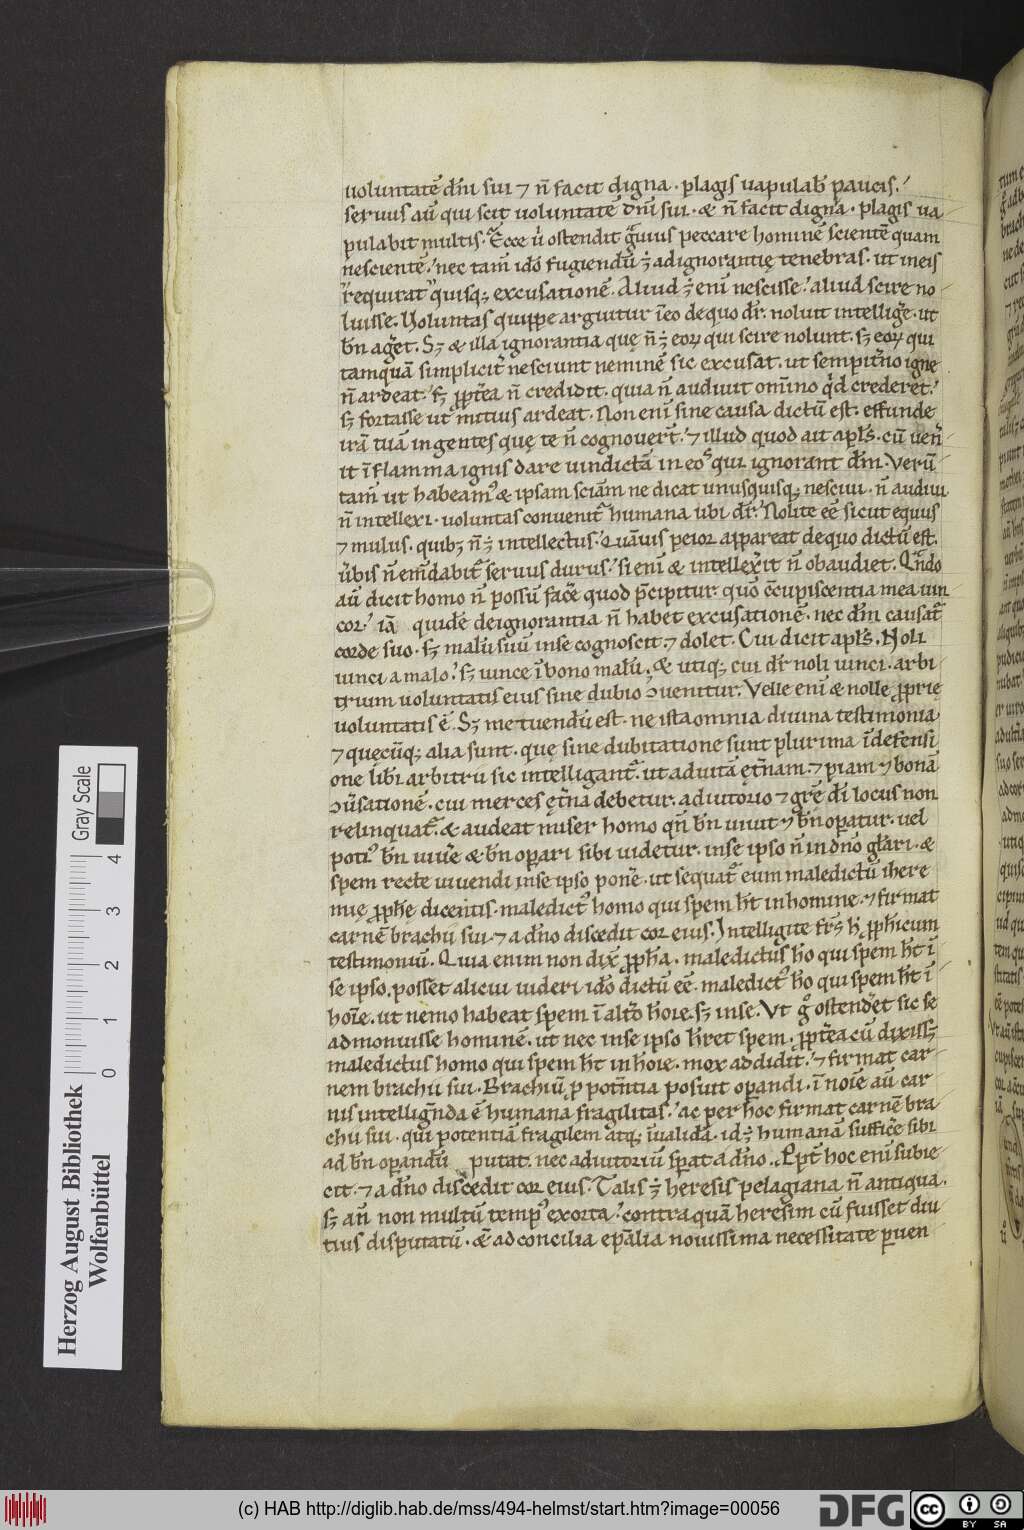 uoluntatē dn̄i sui ⁊ n̄ facit digna · plagis uapulab̄ paucis.
seruus aū qui scit uoluntatē dn̄i sui · & n̄ facit digna · plagis ua
pulabit multis. Ecce u̓ ostendit gͣuius peccare hominē scientē quam
nescientē. nec tam̄ idō fugiendū ē ad ignorantię tenebras. ut in eis
requirat quisq; excusationē. Aliud ē enī nescisse. aliud scire no
luisse. Uoluntas quippe arguitur in eo de quo dr̄. noluit intellig̓e. ut
bn̄ ag̓et. Sꝫ & illa ignorantia quę n̄ ē eoꝝ qui scire nolunt. sꝫ eoꝝ qui
tamquā simplicit̓ nesciunt neminē sic excusat. ut sempit̓no igne
n̄ ardeat. sꝫ ꝓpt̓ea n̄ credidit. quia n̄ audiuit omīno qd̓ crederet.
sꝫ fortasse ut mitius ardeat. Non enī sine causa dictū est. effunde
irā tuā in gentes quę te n̄ cognouer̄t. ⁊ illud quod ait apl̄s. cū uen̓
it ī flamma ignis dare uindictā in eos qui ignorant dm̄. Verū
tam̄ ut habeamꝰ & ipsam sciām ne dicat unusquisq; nesciui. n̄ audiui
n̄ intellexi. uoluntas conuenit̓ humana ubi dr̄. Nolite eē sicut equus
⁊ mulus. quibꝫ n̄ ē intellectus. Quāuis peior appareat de quo dictū est.
u̓bis n̄ em̄dabit̓ seruus durus. si enī & intellex̓it n̄ obaudiet. Qn̄do
aū dicit homo n̄ possū fac̓e quod p̄cipitur quō c̄cupiscentia mea uin
cor. iā quidē de ignorantia n̄ habet excusationē. nec dm̄ causat̓
corde suo. sꝫ malū suū in se cognoscit. ⁊ dolet. Cui dicit apl̄s. Noli
uinci a malo. sꝫ uince ī bono malū. & utiq; cui dr̄ noli uinci. arbi
trium uoluntatis eius sine dubio ↄuenitur. Velle enī & nolle ꝓprie
uoluntatis ē. Sꝫ metuendū est. ne ista omnia diuina testimonia
⁊ quęcūq; alia sunt. que sine dubitatione sunt plurima ī defensi
one lib̄i arbitrii sic intelligant̓. ut ad uitā ęt̓nam. ⁊ piam ⁊ bonā
ↄu̓sationē. cui merces ęt̓na debetur. adiutorio ⁊ grē dī locus non
relinquat̓. & audeat miser homo qn̄ bn̄ uiuit ⁊ bn̄ opatur. uel
potiꝰ bn̄ uiu̓e & bn̄ opari sibi uidetur. in se ipso n̄ in dn̄o gl̄ari. &
spem recte uiuendi in se ipso pon̓e. ut sequat̓ eum maledictū ihere
mię ꝓph̄ę dicentis. maledictꝰ homo qui spem h̄t in homine. ⁊ firmat
carnē brachii sui. ⁊ a dn̄o discedit cor eius. Intelligite fr̄s h̄ ꝓph̄icum
testimoniū. Quia enim non dix̄ ꝓph̄a. maledictus h̄o qui spem h̄t ī
se ipso. posset alicui uideri idō dictū eē. maledictꝰ h̄o qui spem h̄t ī
hoīe. ut nemo habeat spem ī alt̓o hoīe. sꝫ in se. Vt g̊ ostend̓et sic se
admonuisse hominē. ut nec in se ipso h̄ret spem. ꝓpt̓ea cū dixissꝫ
maledictus homo qui spem h̄t in hoīe. mox addidit. ⁊ firmat car
nem brachii sui. Brachiū ꝓ potn̄tia posuit opandi. ī noīe aū car
nis intellign̄da ē humana fragilitas. ac per hoc firmat carnē bra
chii sui. qui potentiā fragilem atq; īualidā. id ē humanā suffic̓e sibi
ad bn̄ opandū putat. nec adiutoriū sperat a dn̄o. Ppt̓ hoc enī subie
cit. ⁊ a dn̄o discedit cor eius. Talis ē heresis pelagiana n̄ antiqua.
sꝫ an̄ non multū tempꝰ exorta. contra quā heresim cū fuisset diu
tius disputatū. & ad concilia ep̄alia nouissima necessitate puen
Herzog August Bibliothek
Wolfenbüttel
Gray Scale
0 1 2 3 4
(c) HAB http://diglib.hab.de/mss/494-helmst/start.htm?image=00056
DFG
cc BY SA